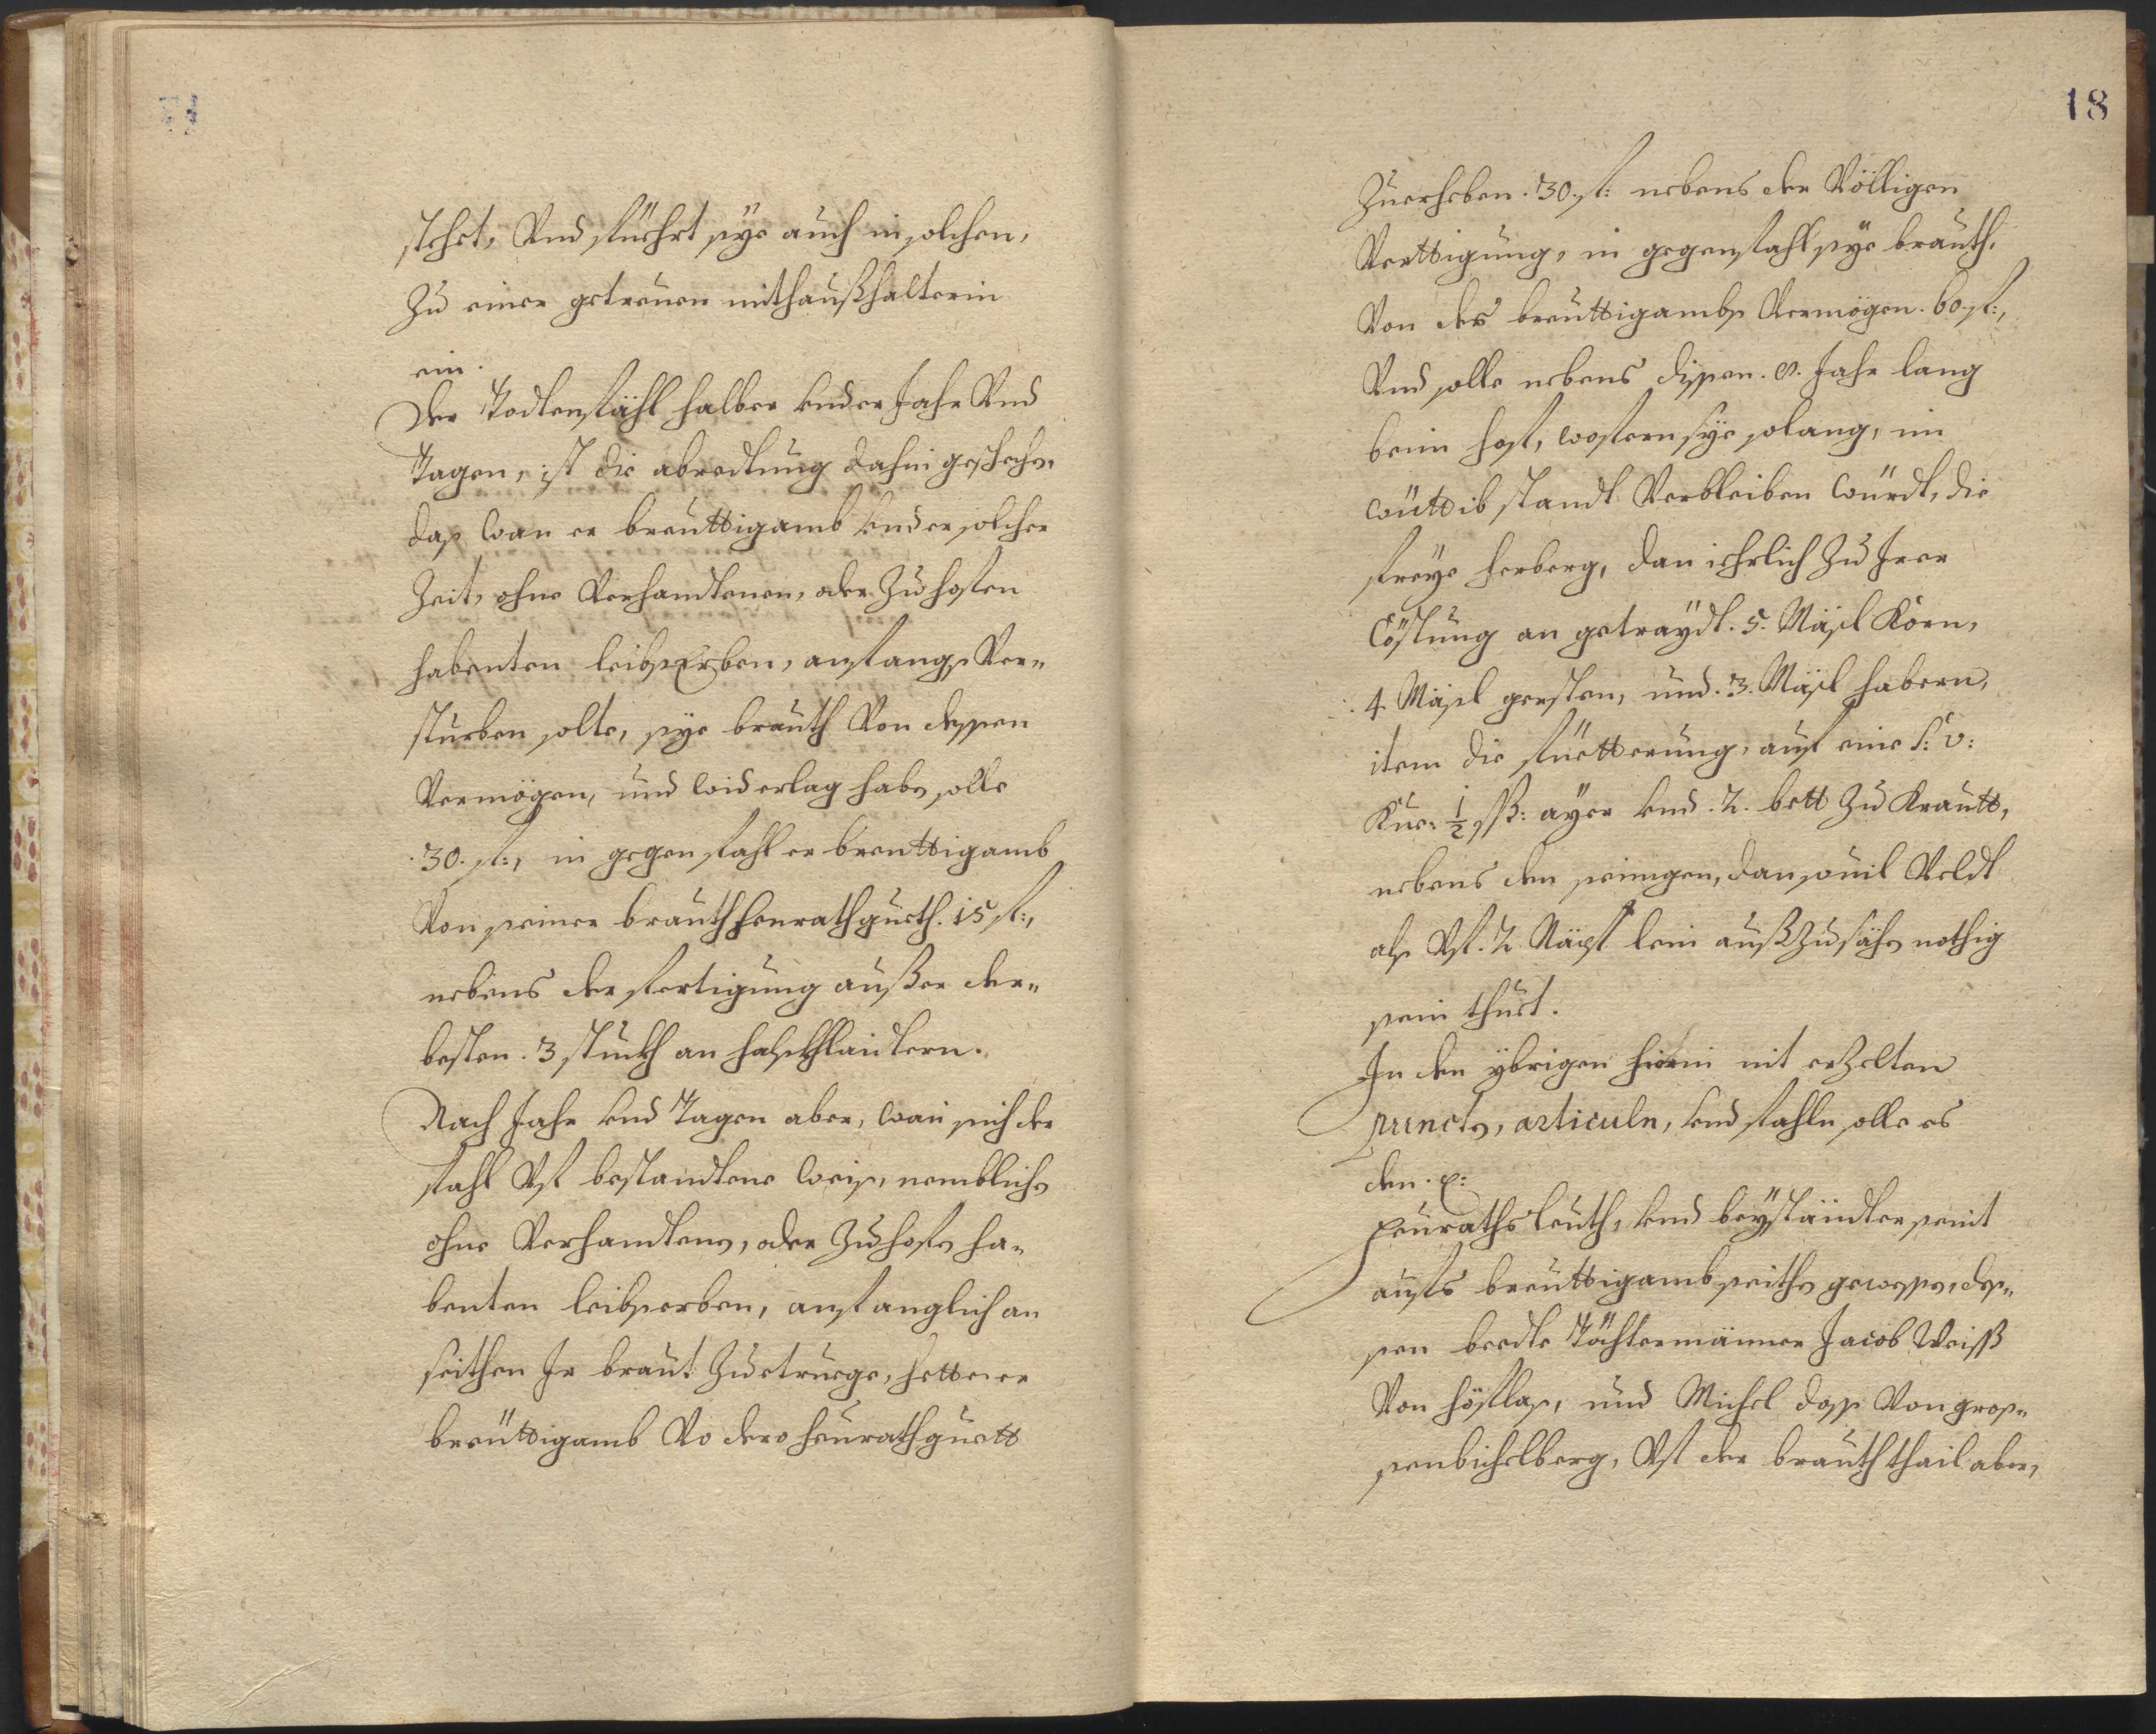 stehet, Vnd füehrt sÿe auch in solchen,
Zu einer getreuen mithaußhalterin
ein.
Der Todtenfähl halber vnder Jahr Vnd
Tagen, ist die abredtung dahin geschehen,
das wan er breuttigamb vnder solcher
Zeit, ohne Verhandtenen, oder Zuhoffen
habenten leibsErben, anfangs Ver-
sturben solte, sÿe brauth Von dessen
Vermögen, und widerlag haben solle
.30. fl:, in gegenfahl er breuttigamb
Von seiner brauth heurathgueth. 15 fl:,
nebens der fertigung außer der
besten .3 stuckh an halskhlaidtern.
Nach Jahr vnd Tagen aber, wan sich der
fahl Vf bestandtene weis, nemblichen
ohne Verhandtenen, oder Zuhoffen ha-
benten leibserben, anfanglich an
seithen Ir braut Zuetruege, hette er
breüttigamb Vo dero heurathguett
18
Zuerheben .30. fl: nebens der Völligen
Verttigung, in gegenfahl sÿe brauth,
Von des breuttigambs Vermögen .60. fl:,
Vnd solle nebens dissen . Jahr lang
beim hoff, wofern sÿe solang, im
wüttib standt Verbleiben würdt, die
freÿe herberg, dan iehrlich Zu Irer
Cöstung an getraÿdt .5. Mäsl Korn,
.4. Mäsl gersten, und .3. Mäsl habern,
item die fuetterung, auf eine S: v:
Kue, ½ ßß: aÿer vnd .2. bett Zu Krautt,
nebens den seinigen, dan souil Veldt
als Vf .2. Näpf lein außzusähen nothig
sein thuet.
In den ÿbrigen hierin nit erzelten
puncten, articuln, vnd fählen solle es
den .p:
Heuraths leuth, vnd beÿständter seint
aufs breuttigamb seithen gewessen, des-
sen beedte Töchtermänner Jacob Weiss
Von höflas, und Michel doss Von gros-
senbichelberg, Vf der brauth thail aber,